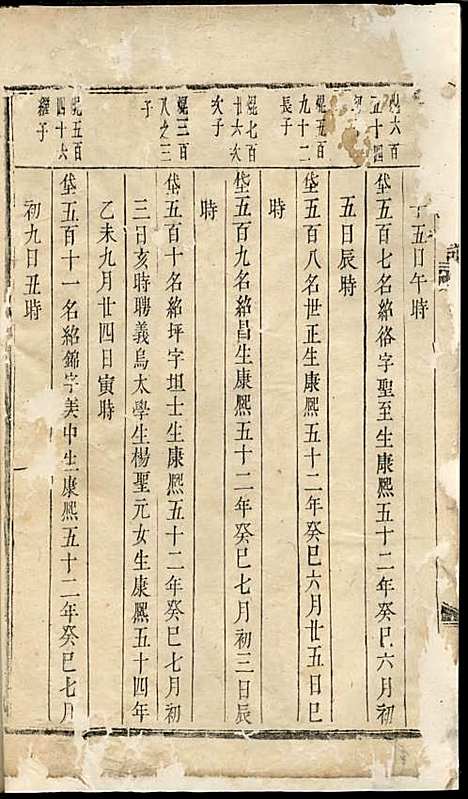 十五日午時
焜六百
五十四
岱五百七名紹徉字聖至生康熙五十二年癸巳六月初
五日辰時
焜五百
九十二
長子
岱五百八名世正生康熙五十二年癸巳六月廿五日巳
時
焜七百
廿六次
次子
岱五百九名紹昌生康熙五十二年癸巳七月初三日辰
時
焜三百
八之三
子
岱五百十名紹坪字坦士生康熙五十二年癸巳七月初
三日亥時聘義烏太學生楊聖元女生康熙五十四年
乙未九月廿四日寅時
焜五百
四十六
繼子
岱五百十一名紹錦字美中生康熙五十二年癸巳七月
初九日丑時